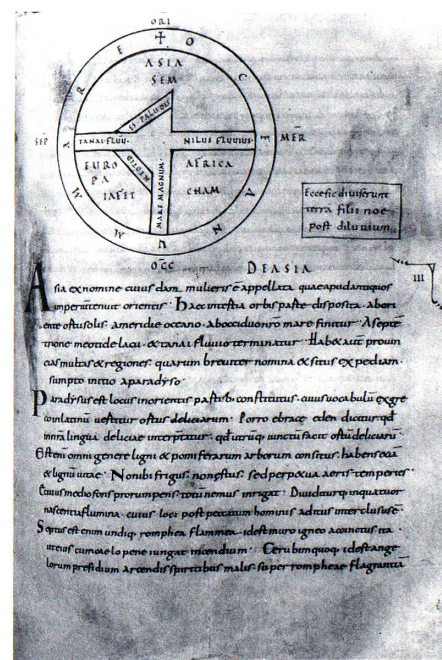 ORI
MARE OCEANUM
ASIA
SEM
IS PALUDIS
SEP̅
TANAI·FLUU̅·
NILUS FLUUIUS
MER̅
EURO
PA
IAFET
MEOTID
MARE MAGNUM
AFRICA
CHAM
Ecce sic diuiserunt
terra filii noe
post diluuium
OCC̅
DE ASIA
III
Asia ex nomine cuiusdam mulieris ē appellata quae apud antiquos
imperiū tenuit orientis · Haec in tertia orbis parte disposita · ab ori
ente ortu solis · a meridie oceano · ab occiduo nr̄o mare finitur · A septē
trione meotide lacu · & tanai fluuio terminatur · Hab& autē prouin
cias multas & regiones · quarum breuiter nomina & situs expediam ·
sumpto initio a paradyso ·
Paradysus est locus in orientis partib· constitutus · cuius uocabulū ex gre
co in latinū uertitur ortus deliciarum · Porro ebrace eden dicitur · qđ
in nr̄a lingua deliciae interp̄tatur · qđ utrūq· iunctū facit ortū deliciarū ·
Est eni omni genere ligni & pomiferarum arborum consitus · habens &iā
& lignū uitae · Non ibi frigus · non ęstus · sed perp&ua aeris temperies ·
E cuius medio fons prorumpens · totū nemus inrigat · Diuiditurq· in quatuor
nascentia flumina · cuius loci post peccatum hominis aditus interclusus ē ·
Septus est enim undiq· romphea flammea · id est muro igneo accinctus · ita
ut eius cum caelo pene iungat incendium · Cerubim quoq· id est ange
lorum presidium arcendis spiritibus malis · super rompheae flagrantiā